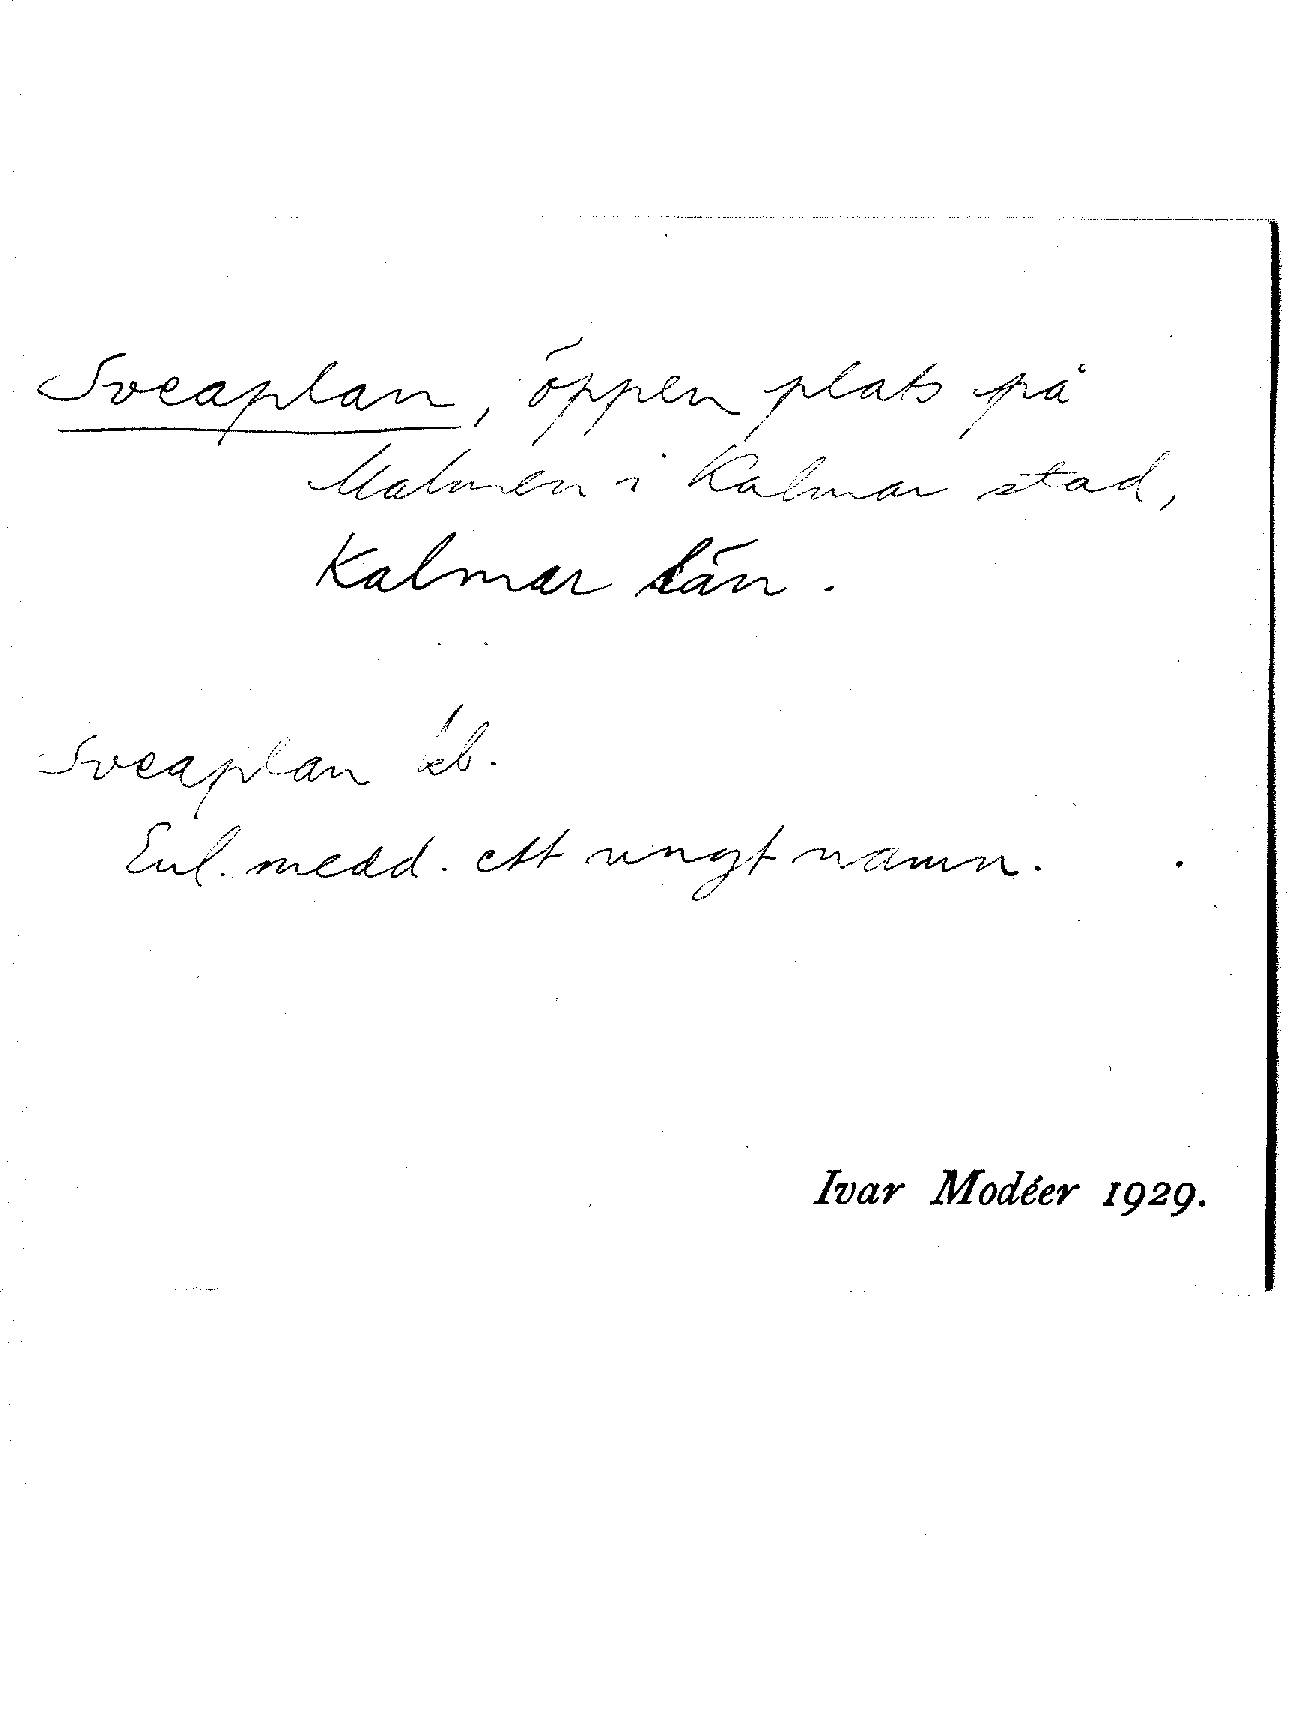 Sveaplan, öppen plats på
Malmen i Kalmar stad,
Kalmar län.
Sveaplan
Enl. medd. ett ungt namn.
Ivar Modéer 1929.